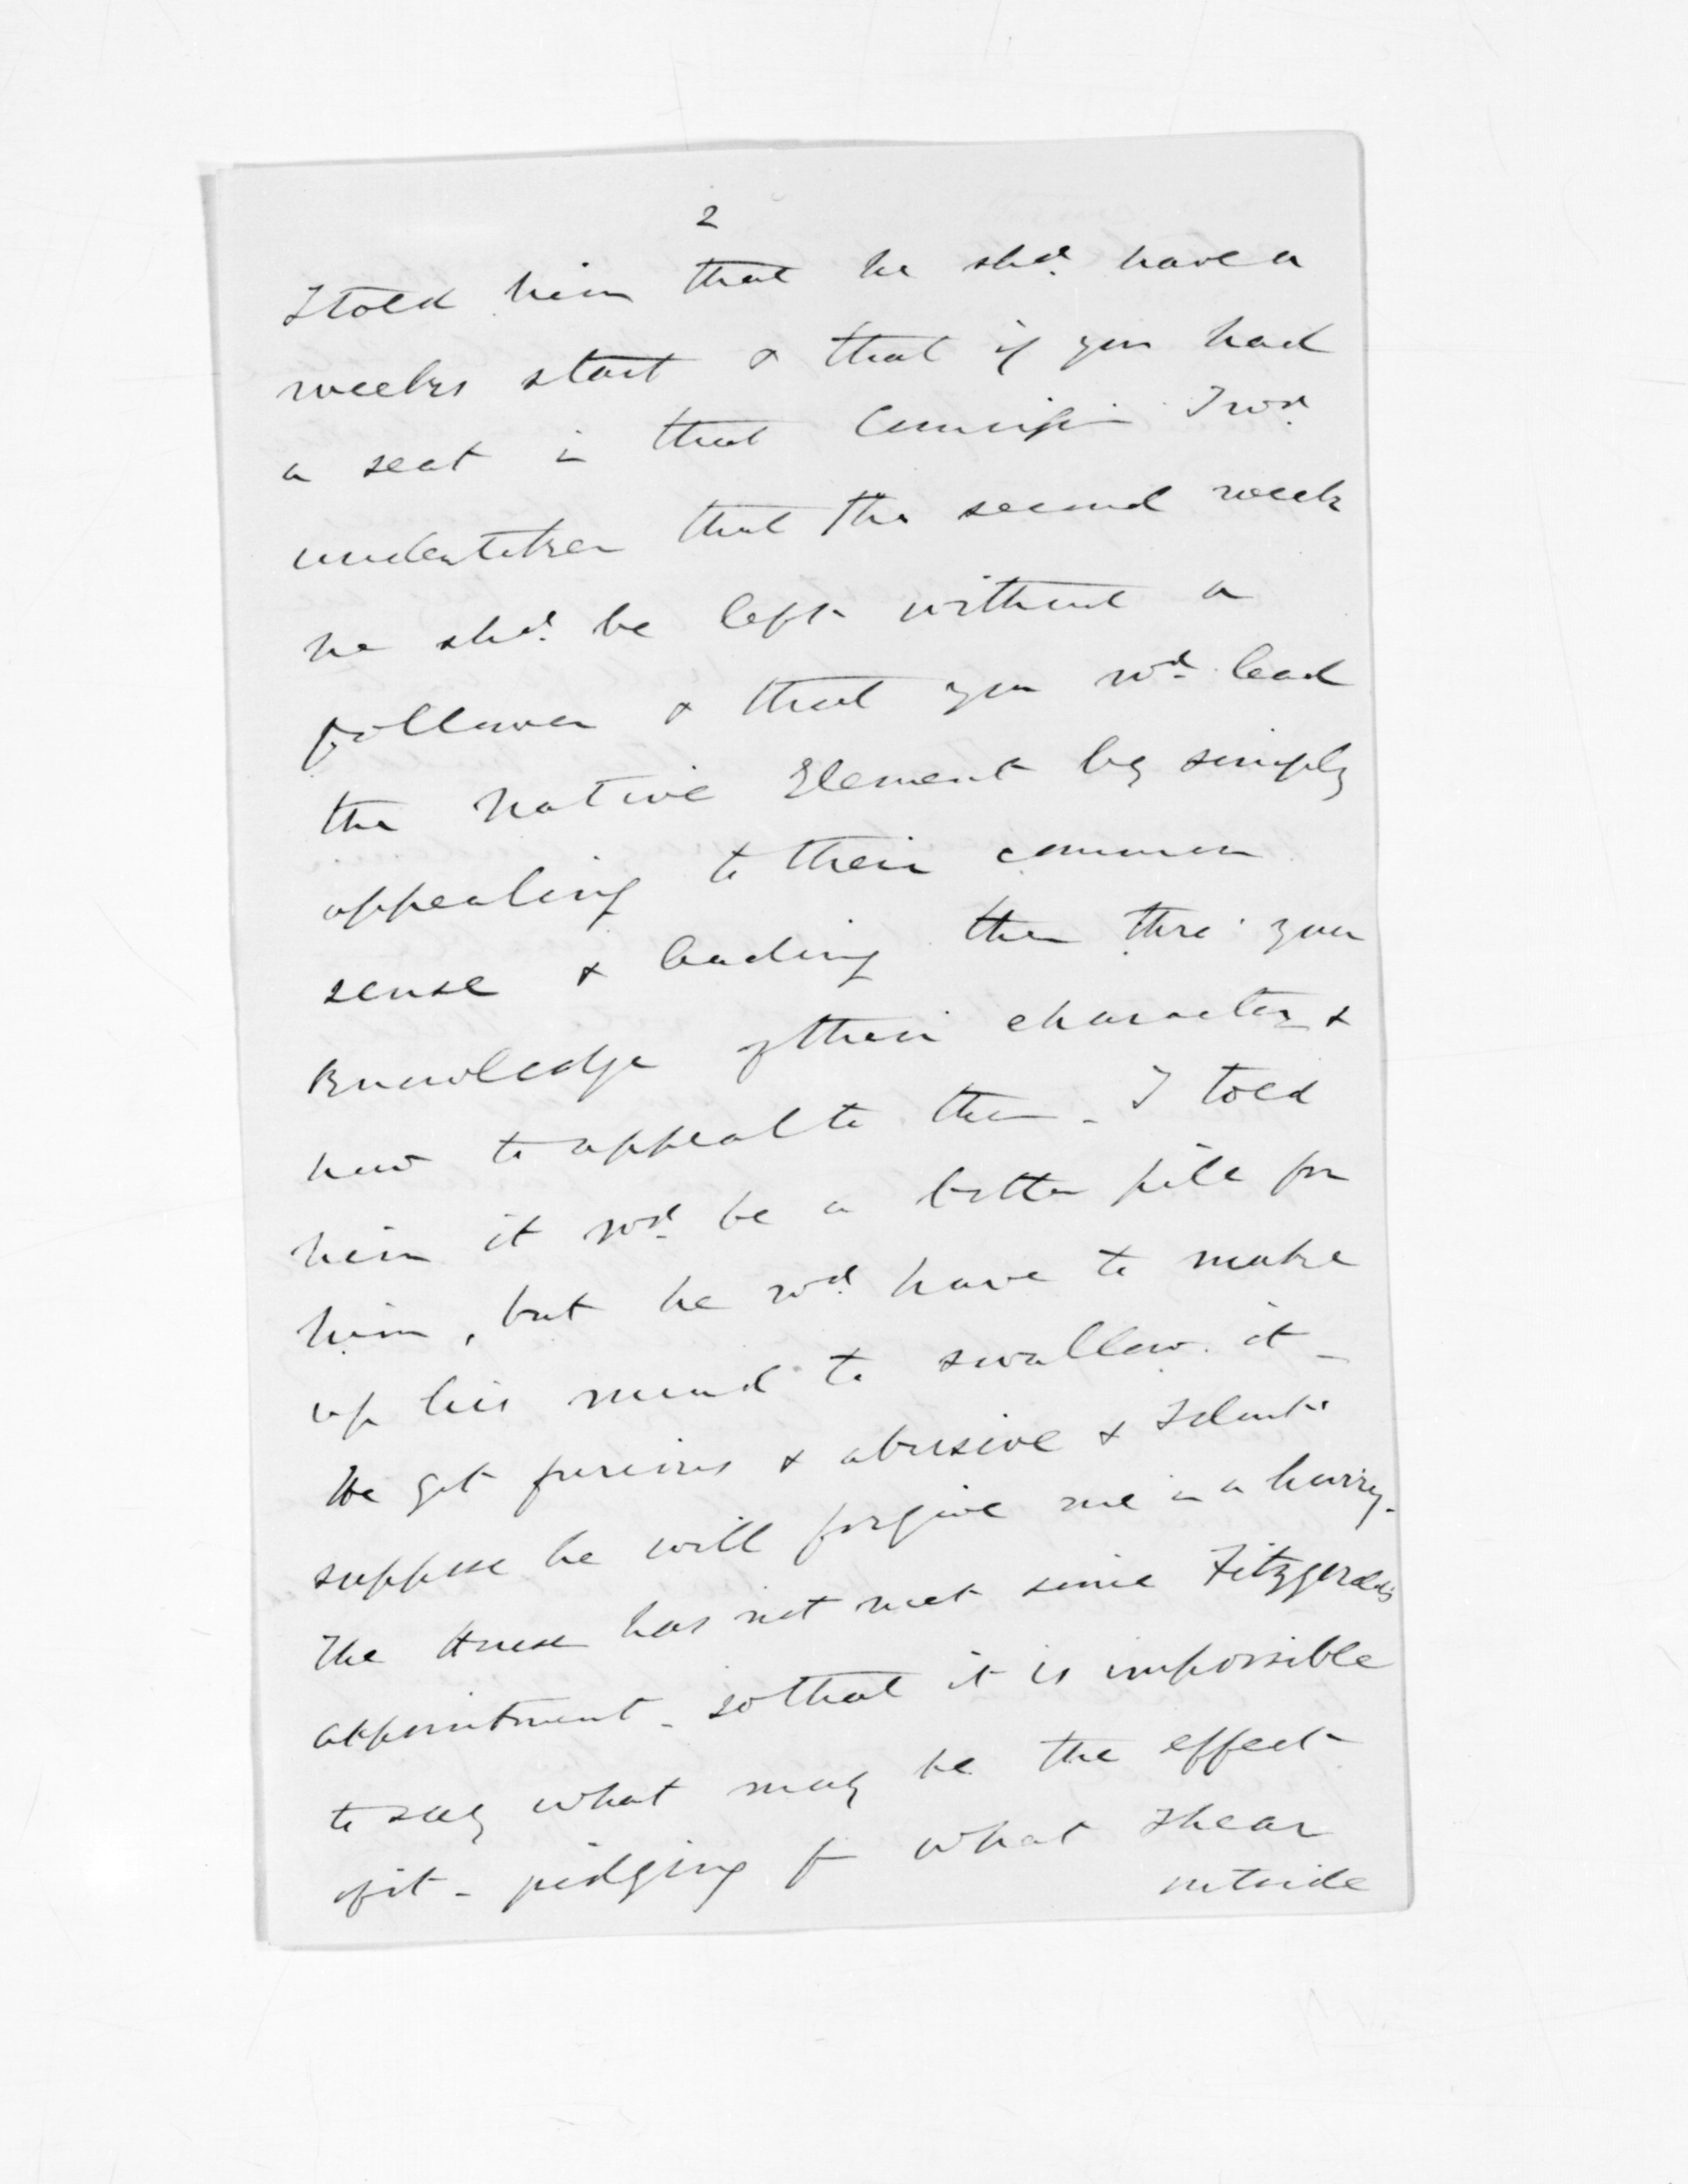 2
I told him that he shd. have a
weeks start & that if you had
a seat in that Commission I wd.
undertaken that the second week
he shd. be left without a
follower & that you wd. lead
the Native Element by simply
appealing to their common
sense & leading them thro' your
knowledge of their character &
how to appeal to them - I told
him it wd. be a bitter pill for
him, but he wd. have to make
up his mind to swallow it -
He got furious & abusive & I dont
suppose he will forgive me in a hurry -
The House has not met since Fitzgeralds
appointment - so that it is impossible
to say what may be the effect
of it - judging fm what I hear
outside